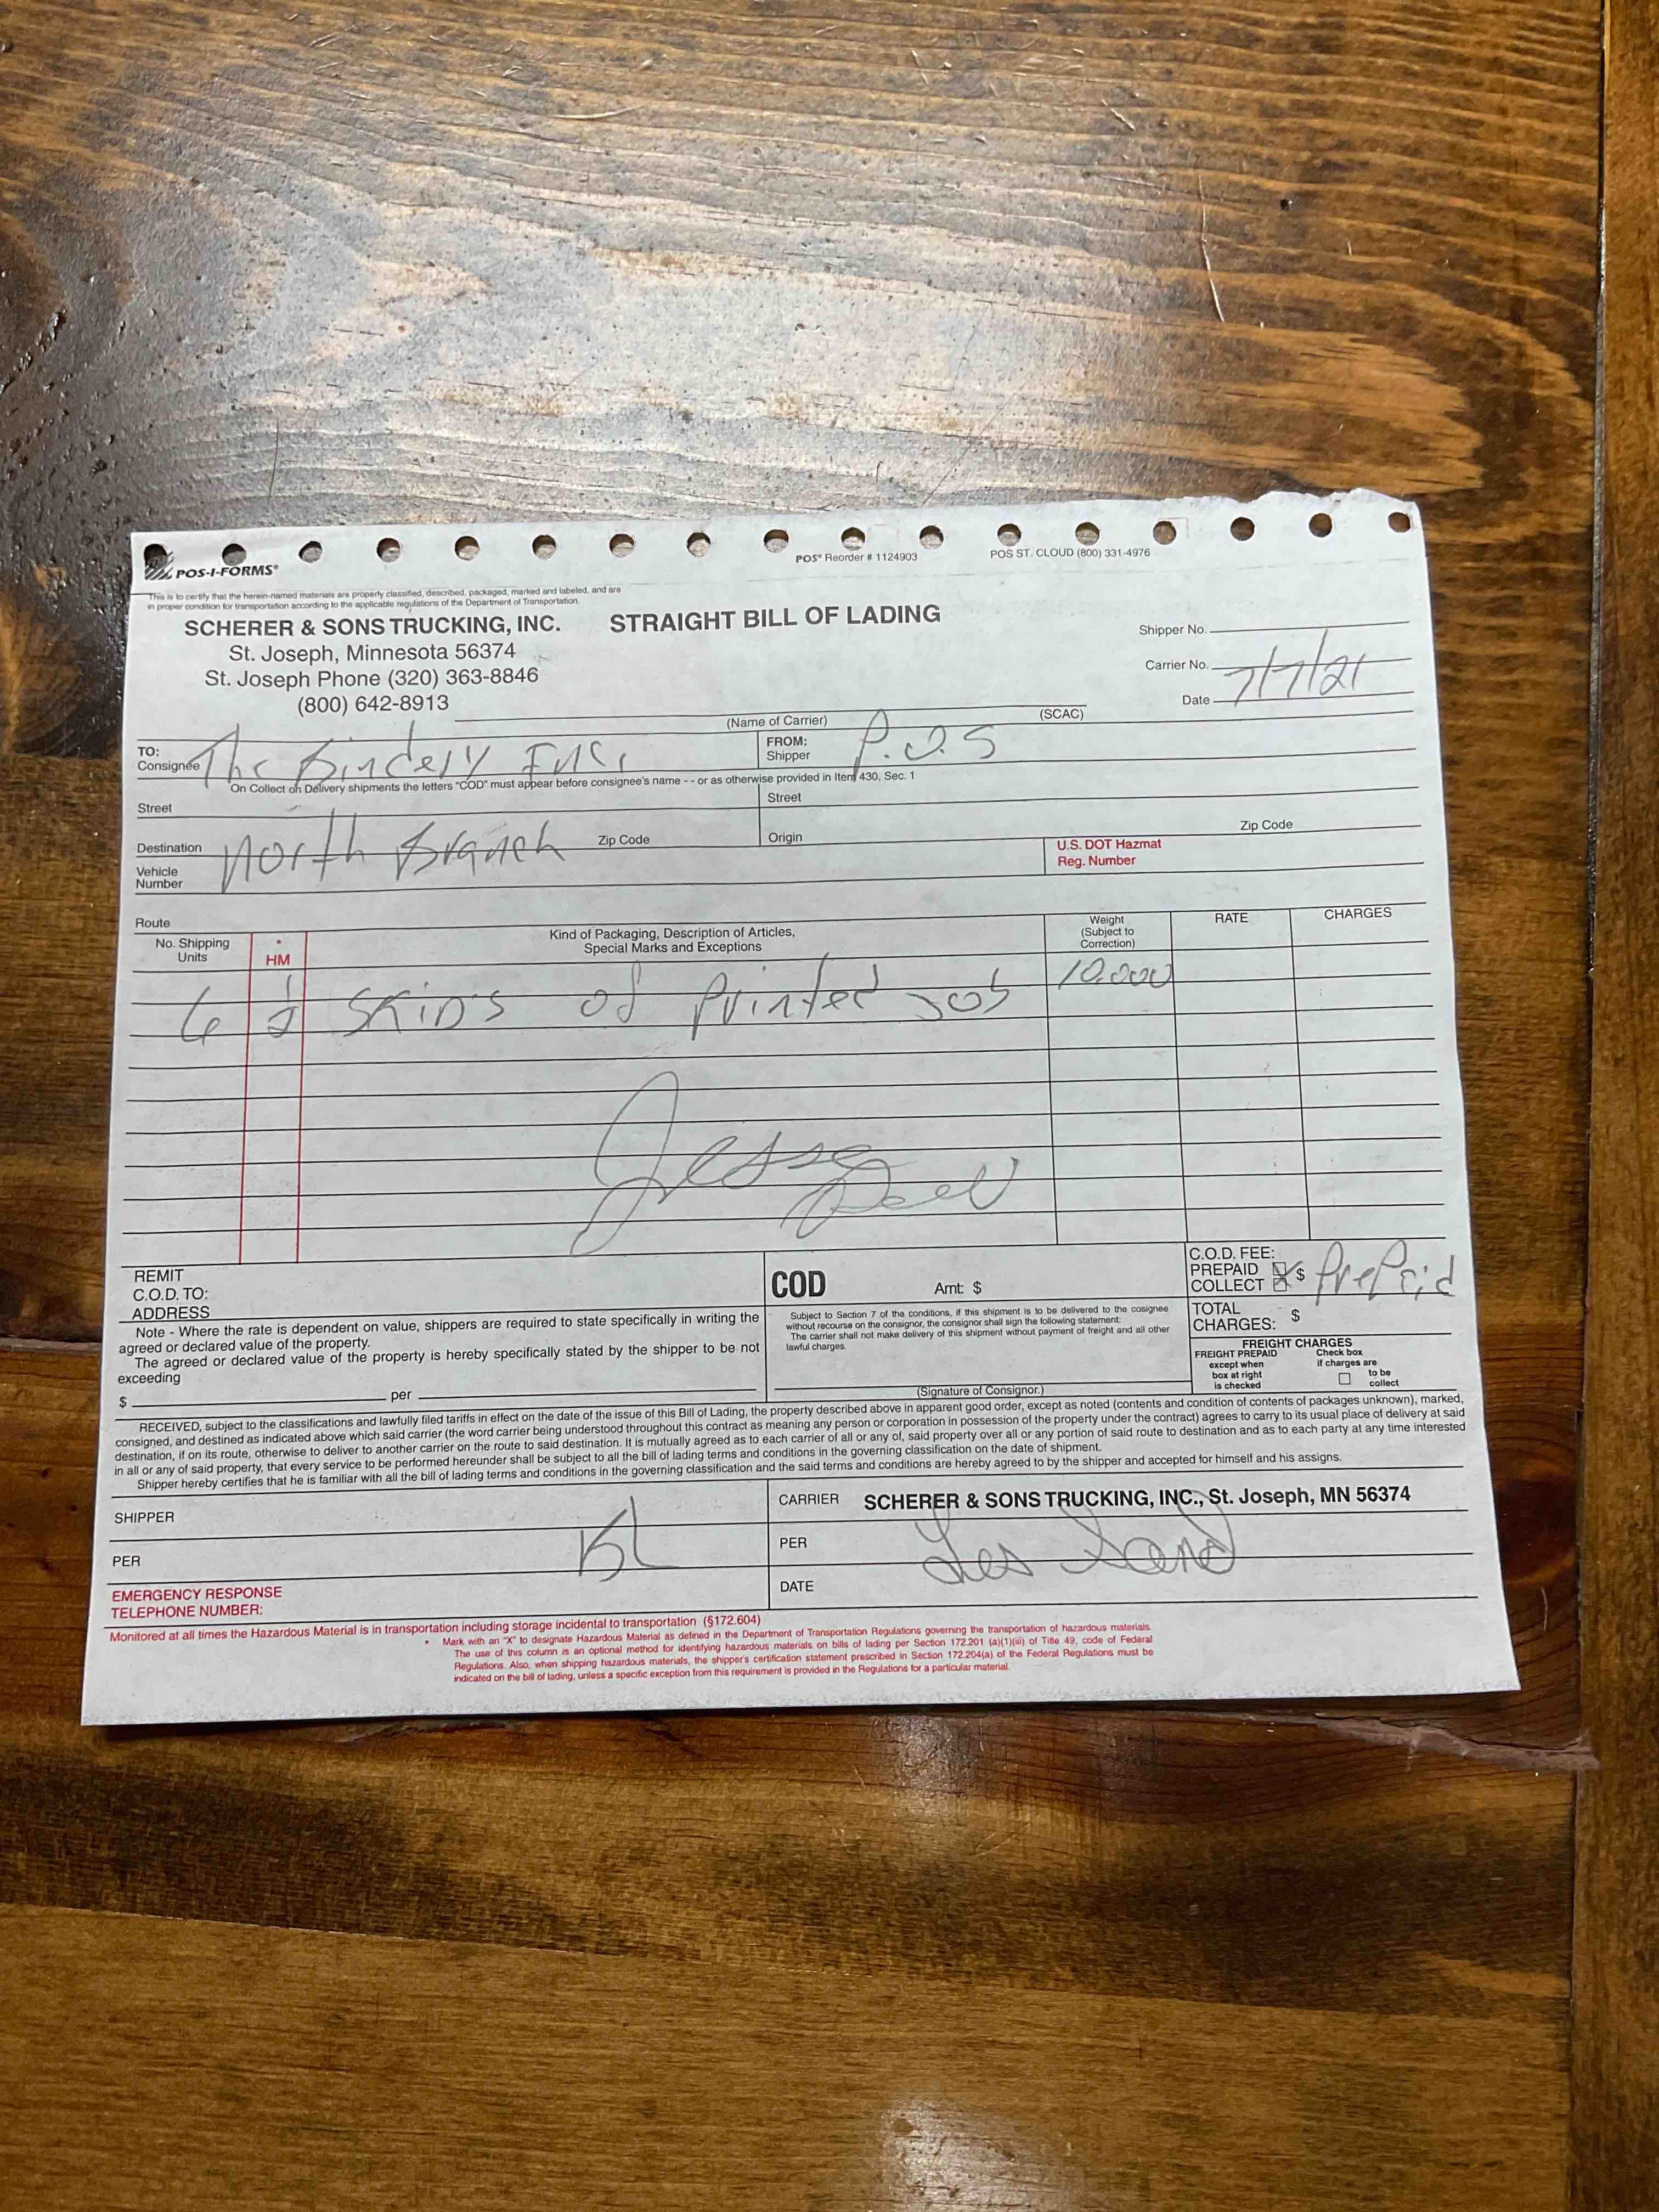 POS-I-FORMS®
POS® Reorder # 1124903
POS ST. CLOUD (800) 331-4976
This is to certify that the herein-named materials are properly classified, described, packaged, marked and labeled, and are
in proper condition for transportation according to the applicable regulations of the Department of Transportation.
SCHERER & SONS TRUCKING, INC.
STRAIGHT BILL OF LADING
St. Joseph, Minnesota 56374
St. Joseph Phone (320) 363-8846
(800) 642-8913
Shipper No.
Carrier No.
Date 7/7/21
(Name of Carrier) (SCAC)
TO:
Consignee The Bindery Inc.
FROM:
Shipper P.O.S
On Collect on Delivery shipments the letters "COD" must appear before consignee's name - - or as otherwise provided in Item 430, Sec. 1
Street
Street
Destination North Branch Zip Code
Origin Zip Code
Vehicle
Number
U.S. DOT Hazmat
Reg. Number
Route
No. Shipping
Units
*
HM
Kind of Packaging, Description of Articles,
Special Marks and Exceptions
Weight
(Subject to
Correction)
RATE
CHARGES
6 1/2 SKIDS of Printed Job 10.000
Jesse
REMIT
C.O.D. TO:
ADDRESS
COD Amt: $
C.O.D. FEE:
PREPAID
COLLECT $ PrePaid
Note - Where the rate is dependent on value, shippers are required to state specifically in writing the
agreed or declared value of the property.
The agreed or declared value of the property is hereby specifically stated by the shipper to be not
exceeding
$ per
Subject to Section 7 of the conditions, if this shipment is to be delivered to the cosignee
without recourse on the consignor, the consignor shall sign the following statement:
The carrier shall not make delivery of this shipment without payment of freight and all other
lawful charges.
(Signature of Consignor.)
TOTAL
CHARGES: $
FREIGHT CHARGES
FREIGHT PREPAID
except when
box at right
is checked
Check box
if charges are
to be
collect
RECEIVED, subject to the classifications and lawfully filed tariffs in effect on the date of the issue of this Bill of Lading, the property described above in apparent good order, except as noted (contents and condition of contents of packages unknown), marked,
consigned, and destined as indicated above which said carrier (the word carrier being understood throughout this contract as meaning any person or corporation in possession of the property under the contract) agrees to carry to its usual place of delivery at said
destination, if on its route, otherwise to deliver to another carrier on the route to said destination. It is mutually agreed as to each carrier of all or any of, said property over all or any portion of said route to destination and as to each party at any time interested
in all or any of said property, that every service to be performed hereunder shall be subject to all the bill of lading terms and conditions in the governing classification on the date of shipment.
Shipper hereby certifies that he is familiar with all the bill of lading terms and conditions in the governing classification and the said terms and conditions are hereby agreed to by the shipper and accepted for himself and his assigns.
SHIPPER
CARRIER SCHERER & SONS TRUCKING, INC., St. Joseph, MN 56374
PER KL
PER Les Sand
EMERGENCY RESPONSE
TELEPHONE NUMBER:
DATE
Monitored at all times the Hazardous Material is in transportation including storage incidental to transportation (§172.604)
* Mark with an "X" to designate Hazardous Material as defined in the Department of Transportation Regulations governing the transportation of hazardous materials.
The use of this column is an optional method for identifying hazardous materials on bills of lading per Section 172.201 (a)(1)(iii) of Title 49, code of Federal
Regulations. Also, when shipping hazardous materials, the shipper's certification statement prescribed in Section 172.204(a) of the Federal Regulations must be
indicated on the bill of lading, unless a specific exception from this requirement is provided in the Regulations for a particular material.